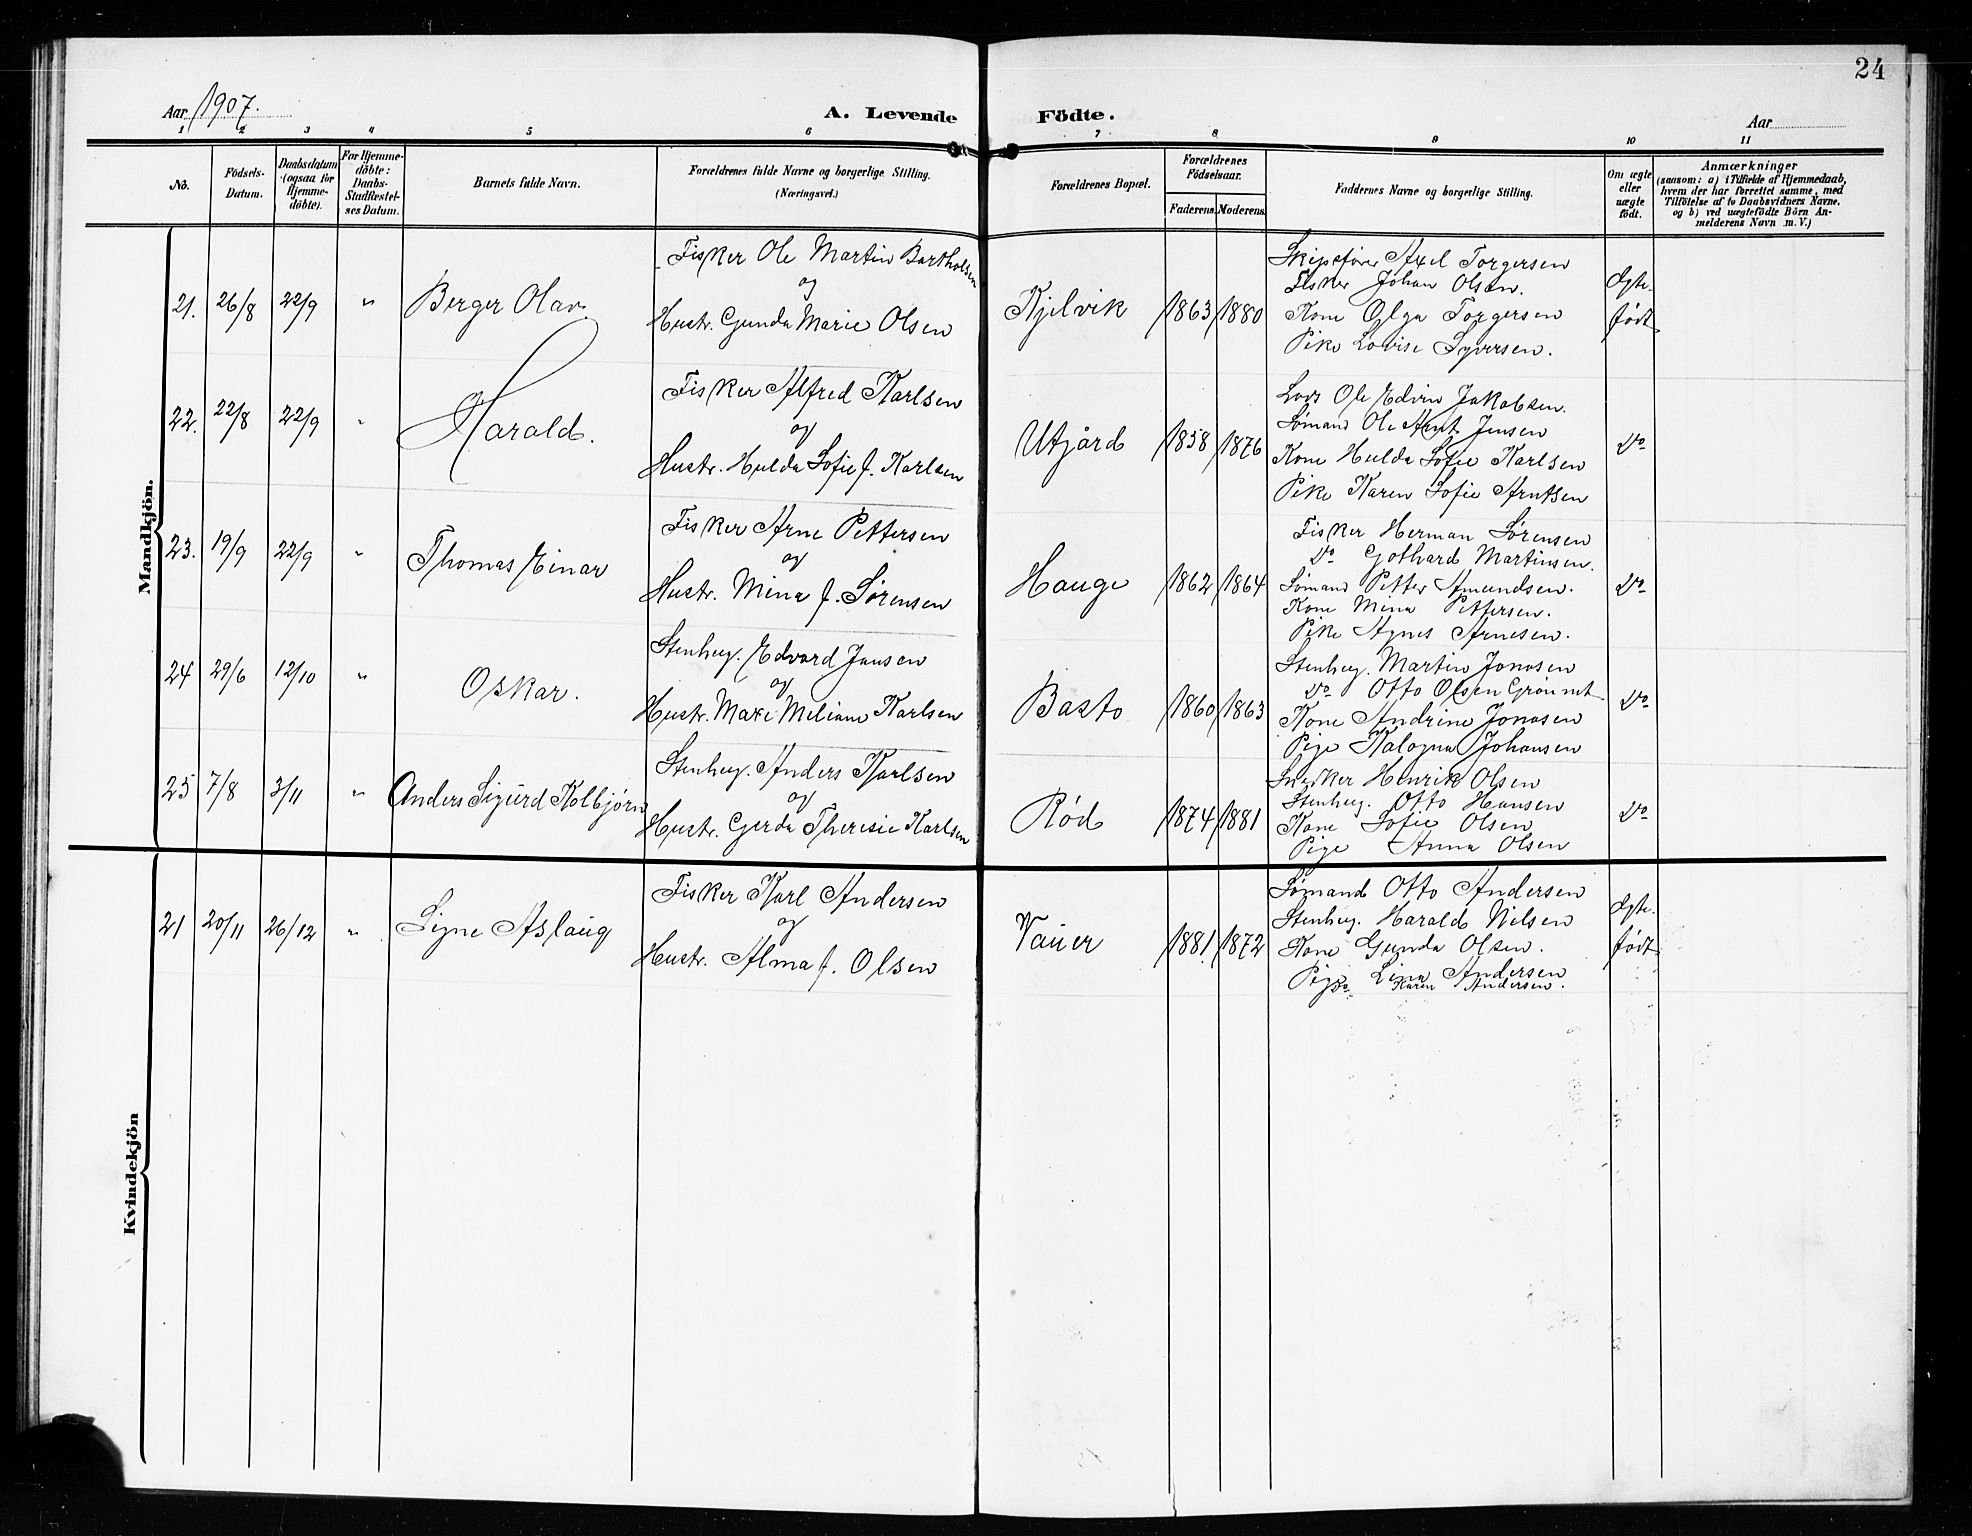 24
Aar 1907.
A. Levende Födte.
Aar
1 2 3 4 5 6 7 8 9 10 11
No.
Födsels-
Datum.
Daabsdatum
(ogsaa for
Hjemme-
döbte).
For Hjemme-
döbte:
Daabs-
Stadfæstel-
ses Datum.
Barnets fulde Navn.
Forældrenes fulde Navne og borgerlige Stilling.
(Næringsvei.)
Forældrenes Bopæl.
Forældrenes
Födselsaar.
Faderens. Moderens.
Faddernes Navne og borgerlige Stilling.
Om ægte
eller
uægte
födt.
Anmærkninger
(sansom: a) i Tilfælde af Hjemmedaab,
hvem der har forrettet samme, med
Tilföielse af to Daabsvidners Navne,
og b) ved uægtefödte Börn An-
melderens Navn m. V.)
Mandkjön.
21. 26/8 22/9 " Berger Olav.
Fisker Ole Martin Bartholsen
og
Hustr. Gunda Marie Olsen
Kjelvik 1863 1880
Skipsfører Axel Torgersen
Fisker Johan Olsen.
Kone Olga Torgersen
Pike Lovise Syversen.
Ægte-
født
22. 22/8 22/9 " Harald.
Fisker Alfred Karlsen
og
Hustr. Hulda Sofie f. Karlsen
Utjård 1858 1876
Lods Ole Edvin Jakobsen.
Sømand Ole Arnt Jensen
Kone Hulda Sofie Karlsen
Pike Karen Sofie Arntsen
Do
23. 19/9 22/9 " Thomas Einar
Fisker Arne Pettersen
og
Hustr. Mina f. Sørensen
Hauge 1862 1864
Fisker Herman Sørensen
Do Gothard Martinsen.
Sømand Petter Amundsen.
Kone Mina Pettersen.
Pike Agnes Arnesen.
Do
24 29/6 12/10 " Oskar.
Stenhug. Edvard Jansen
og
Hustr. Maxe Meliam Karlsen
Basto 1860 1863
Stenhug. Martin Jonasen
Do Otto Olsen
Kone Andrine Jonasen
Pige Johansen
Do
25 7/8 3/11 " Anders Sigurd Kolbjørn
Stenhug. Anders Karlsen
og
Hustr. Gerda Theresie Karlsen
Rød 1874 1881
Snedker Henrik Olsen
Stenhug. Otto Hansen
Kone Sofie Olsen
Pige Anna Olsen
Do
Kvindekjön
21 20/11 26/12 " Signe Aslaug
Fisker Karl Andersen
og
Hustr. Alma f. Olsen
Vauer 1881 1872
Sømand Otto Andersen
Stenhug. Harald Nilsen
Kone Gunda Olsen.
Pige Lina Andersen
Do Karen Andersen.
Ægte-
født